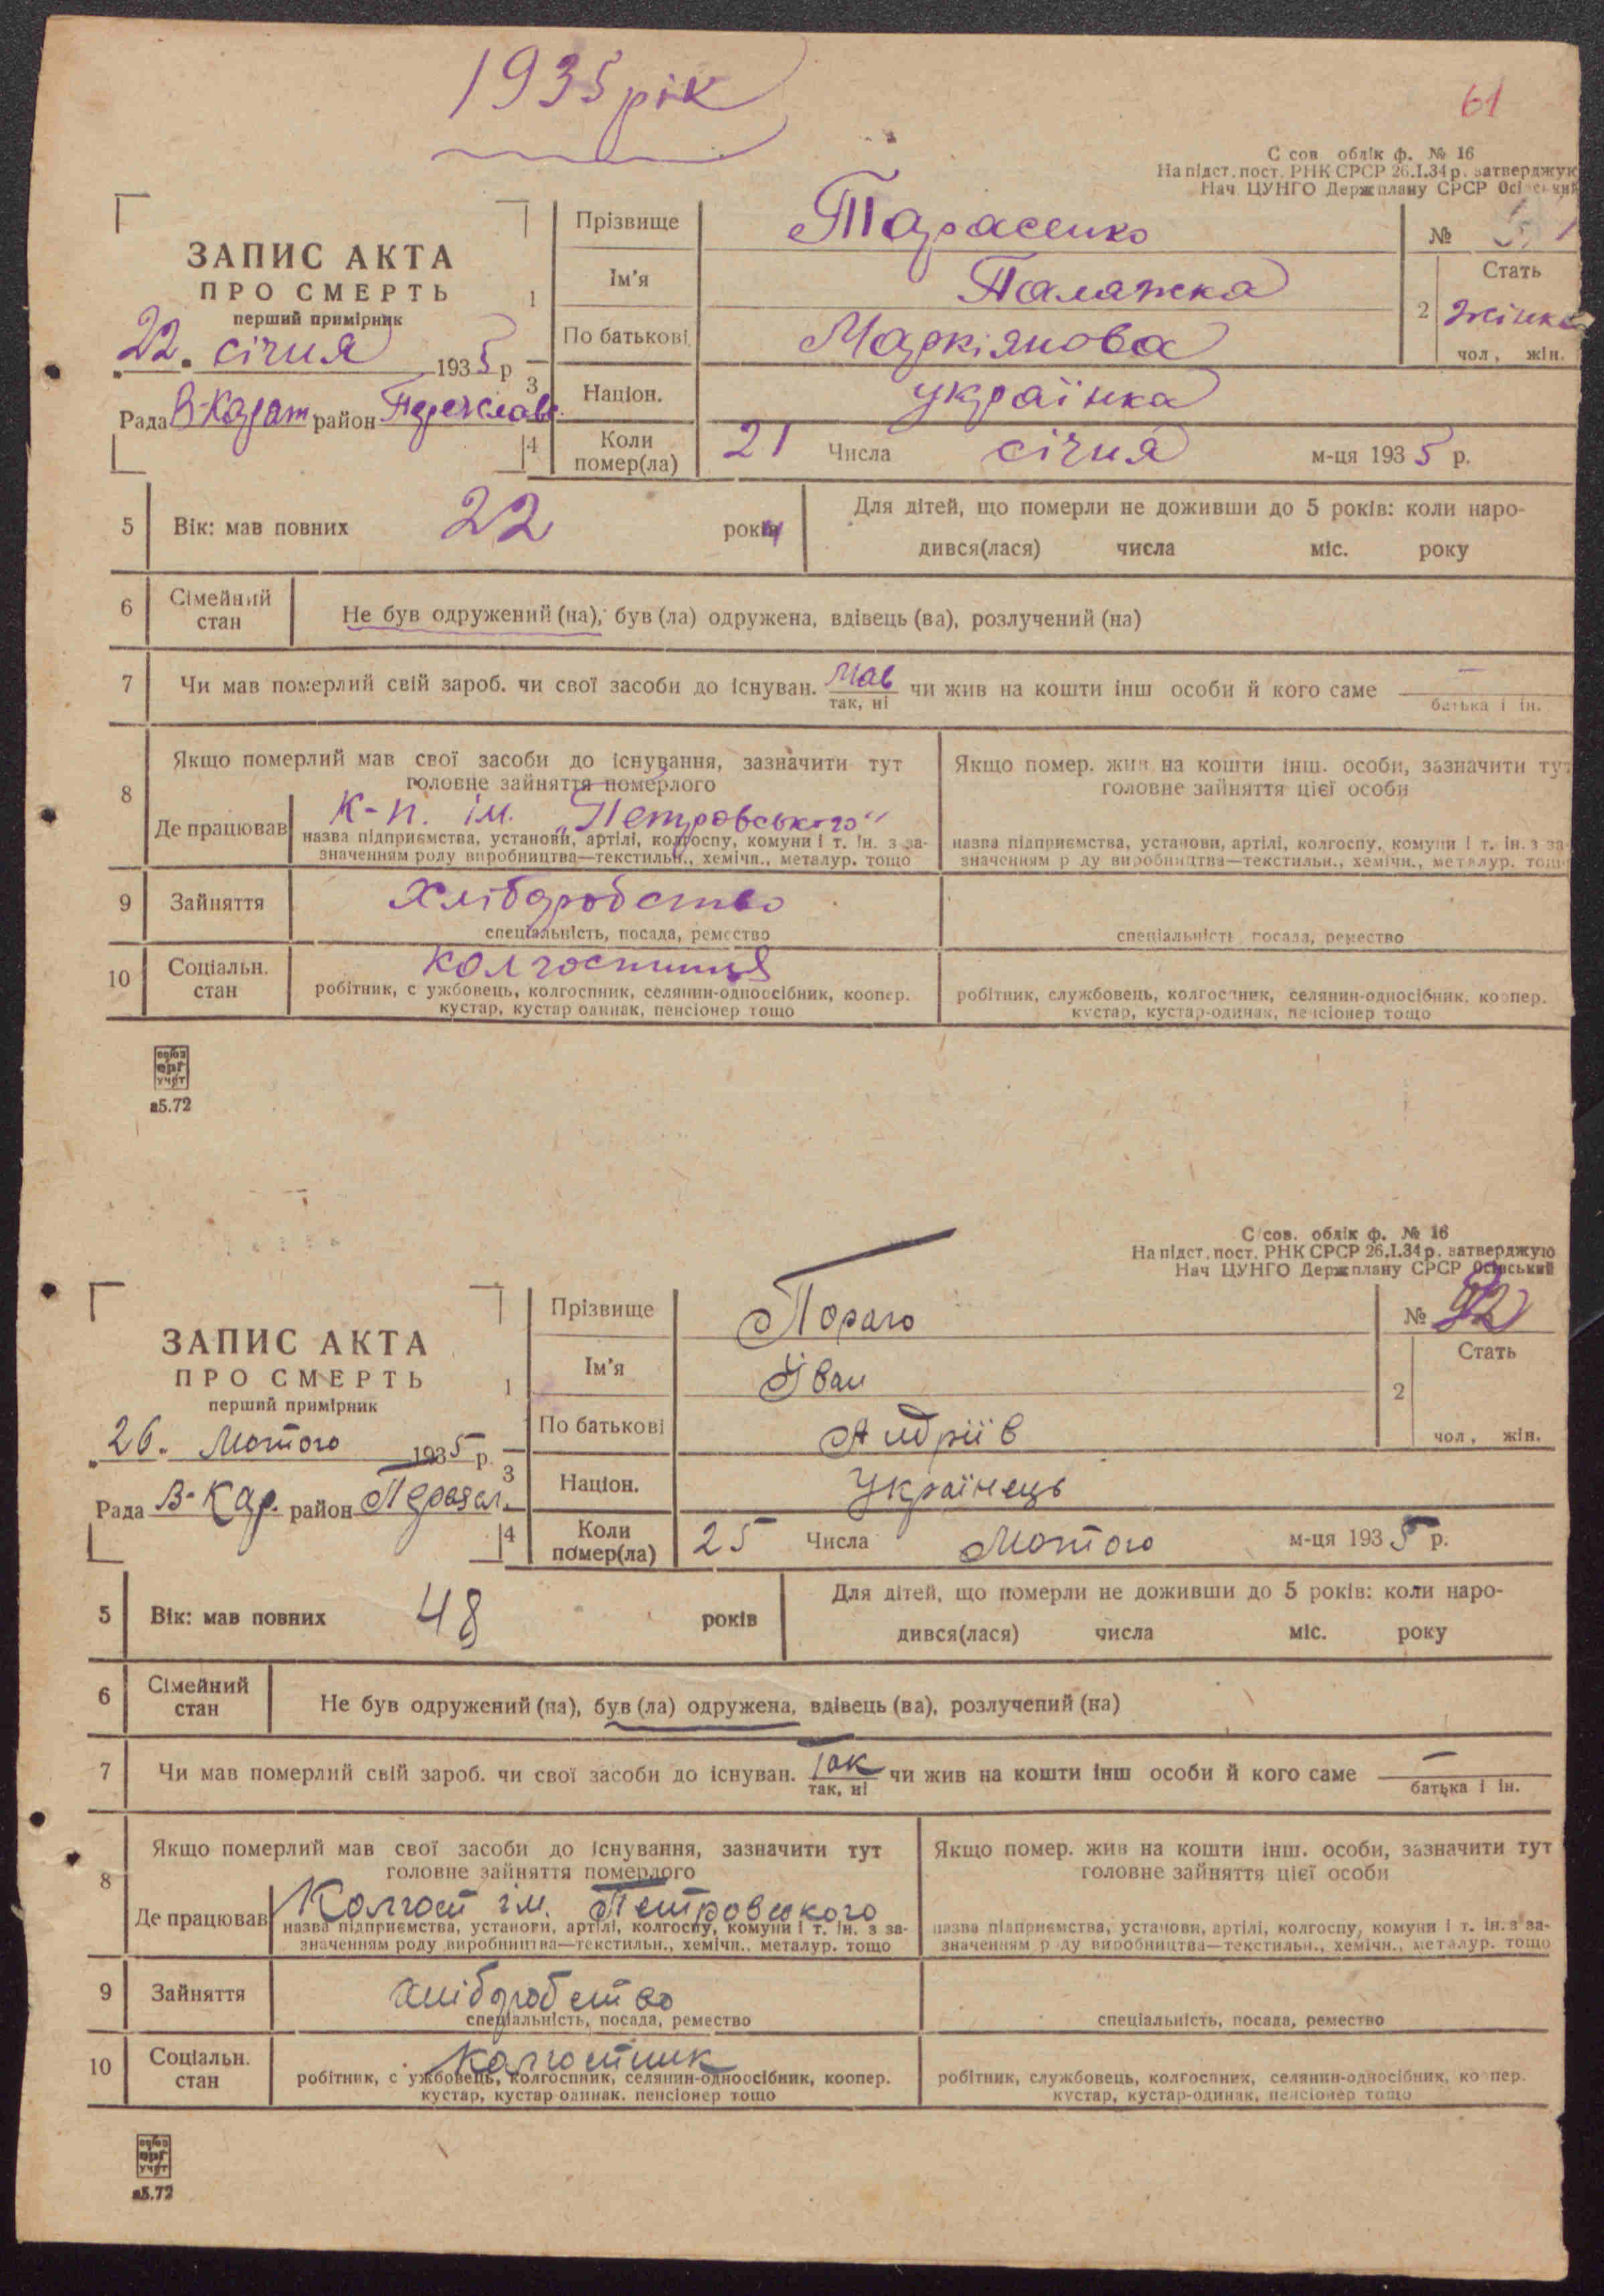 1935 рік
61
С сов облік ф. № 16
На підст. пост. РНК СРСР 26.I.34 р. затверджую
Нач ЦУНГО Держплану СРСР Осінський
ЗАПИС АКТА
ПРО СМЕРТЬ
перший примірник
22. січня 1935 р
Рада В-Карат район Переяслав.
1 Прізвище Тарасенко
Ім'я Палажка
По батькові Маркіянова
№ 1
2 Стать жінка
чол, жін.
3 Націон. українка
4 Коли помер(ла) 21 Числа січня м-ця 1935 р.
5 Вік: мав повних 22 роки
Для дітей, що померли не доживши до 5 років: коли наро-
дився(лася) числа міс. року
6 Сімейний стан Не був одружений (на), був (ла) одружена, вдівець (ва), розлучений (на)
7 Чи мав померлий свій зароб. чи свої засоби до існуван. мав чи жив на кошти інш особи й кого саме —
так, ні батька і ін.
8 Якщо померлий мав свої засоби до існування, зазначити тут
головне зайняття померлого
Де працював к-п. ім. „Петровського"
назва підприємства, установи, артілі, колгоспу, комуни і т. ін. з за-
значенням роду виробництва—текстильн., хемічн., металур. тощо
Якщо помер. жив на кошти інш. особи, зазначити тут
головне зайняття цієї особи
назва підприємства, установи, артілі, колгоспу, комуни і т. ін. з за-
значенням р ду виробництва—текстильн., хемічн., металур. тощо
9 Зайняття хліборобство
спеціальність, посада, ремество
спеціальність посада, ремество
10 Соціальн. стан колгоспниця
робітник, с ужбовець, колгоспник, селянин-одноосібник, коопер.
кустар, кустар одинак, пенсіонер тощо
робітник, службовець, колгоспник, селянин-односібник, коопер.
кустар, кустар-одинак, пенсіонер тощо
союз
орг
учет
а5.72
С/сов. облік ф. № 16
На підст. пост. РНК СРСР 26.I.34 р. затверджую
Нач ЦУНГО Держплану СРСР Осінський
ЗАПИС АКТА
ПРО СМЕРТЬ
перший примірник
26. Лютого 1935 р.
Рада В-Кар. район
1 Прізвище
Ім'я Іван
По батькові Андріїв
№ 2
2 Стать
чол, жін.
3 Націон. Українець
4 Коли помер(ла) 25 Числа Лютого м-ця 1935 р.
5 Вік: мав повних 48 років
Для дітей, що померли не доживши до 5 років: коли наро-
дився(лася) числа міс. року
6 Сімейний стан Не був одружений (на), був (ла) одружена, вдівець (ва), розлучений (на)
7 Чи мав померлий свій зароб. чи свої засоби до існуван. Так чи жив на кошти інш особи й кого саме —
так, ні батька і ін.
8 Якщо померлий мав свої засоби до існування, зазначити тут
головне зайняття померлого
Де працював Колгосп ім. Петровського
назва підприємства, установи, артілі, колгоспу, комуни і т. ін. з за-
значенням роду виробництва—текстильн., хемічн., металур. тощо
Якщо помер. жив на кошти інш. особи, зазначити тут
головне зайняття цієї особи
назва підприємства, установи, артілі, колгоспу, комуни і т. ін. з за-
значенням р ду виробництва—текстильн., хемічн., металур. тощо
9 Зайняття хліборобство
спеціальність, посада, ремество
спеціальність, посада, ремество
10 Соціальн. стан колгоспник
робітник, с ужбовець, колгоспник, селянин-одноосібник, коопер.
кустар, кустар одинак. пенсіонер тощо
робітник, службовець, колгоспник, селянин-односібник, ко пер.
кустар, кустар-одинак, пенсіонер тощо
союз
орг
учет
а5.72